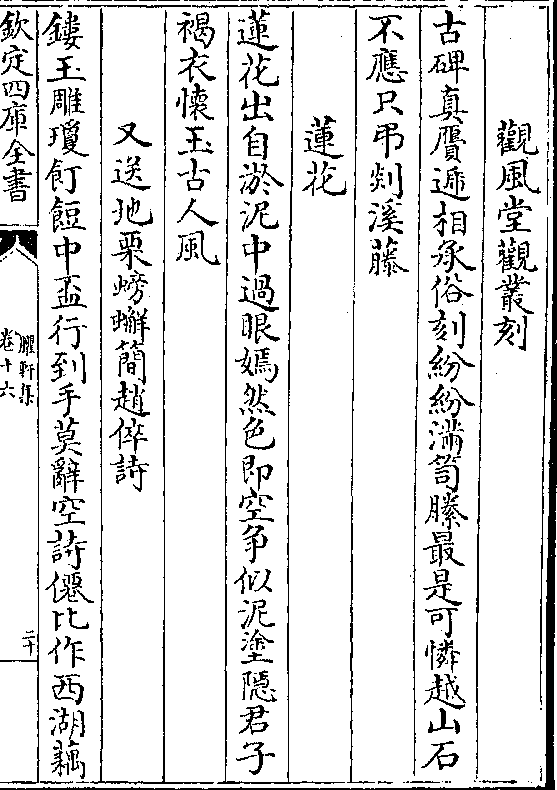 觀風堂觀叢刻
古碑真贋遞相承俗刻紛紛满笥縢最是可憐越山石
不應只弔剡溪藤
蓮花
蓮花出自淤泥中過眼嫣然色即空争似泥塗隱君子
褐衣懷玉古人風
又送地栗螃蠏簡趙倅詩
鏤玉雕瓊飣餖中盃行到手莫辭空詩僊比作西湖藕
欽定四庫全書
臞軒集
卷十六
二十